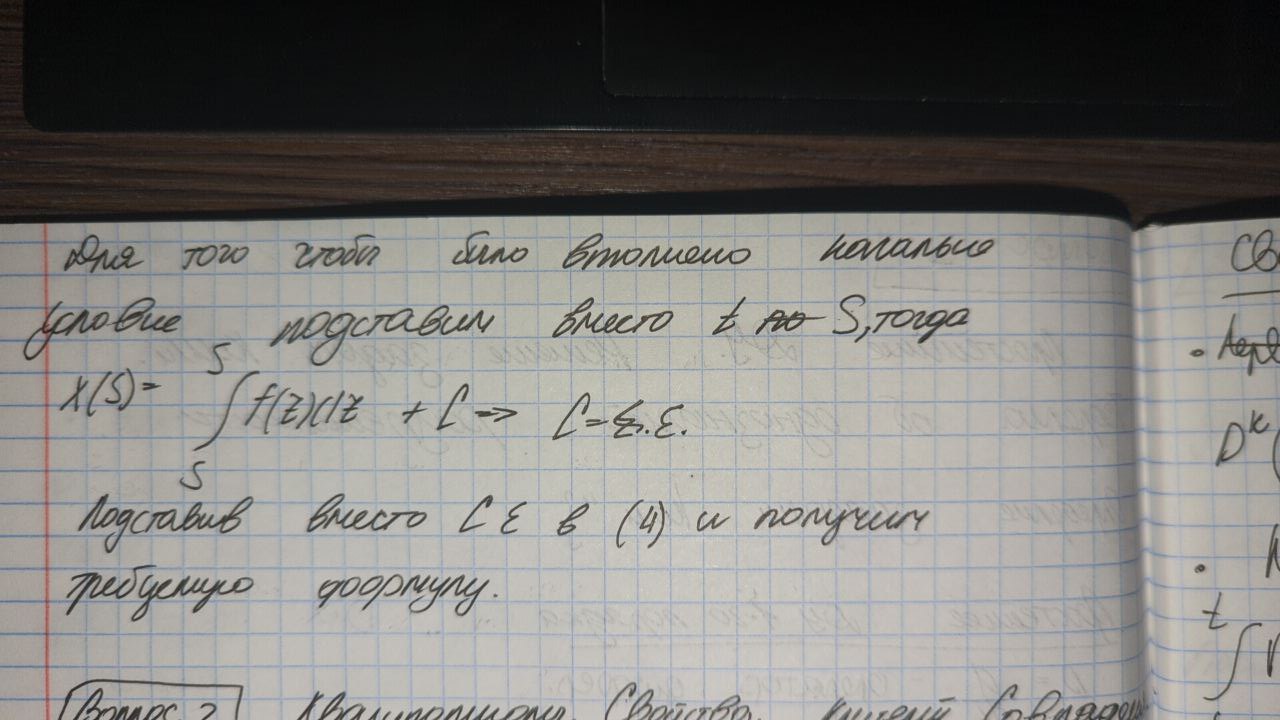 Для того чтобы было втолнено начальне
условие подставим вместо t по S, тогда
X(S) = ∫_S^S f(z)dz + C => C = ξ. ξ.
Подставив вместо C ξ в (4) и получим
требуемую формулу.
Вопрос 2 Свойства.
Св
D^k (
t
∫